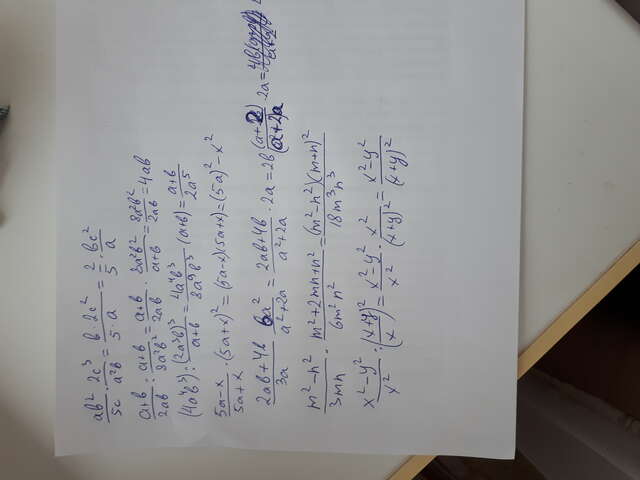 ab²/5c · 2c³/a²b = b · 2c²/5 · a = 2/5 · bc²/a
a+b/2ab : a+b/8a²b² = a+b/2ab · 8a²b²/a+b = 8a²b²/2ab = 4ab
(4a⁴b³) : (2a³b)³/a+b = 4a⁴b³/8a⁹b³ (a+b) = a+b/2a⁵
5a-x/5a+x · (5a+x)² = (5a-x)(5a+x) = (5a)² - x²
2ab+4b/3a · 6a²/a²+2a = 2ab+4b/a²+2a · 2a = 2b(a+2)/(a+2)a 2a =
m²-n²/3mn · m²+2mn+n²/6m²n² = (m²-n²)(m+n)²/18m³n³
x²-y²/x² : (x+y/x)² = x²y²/x² · x²/(x+y)² = x²y²/(x+y)²